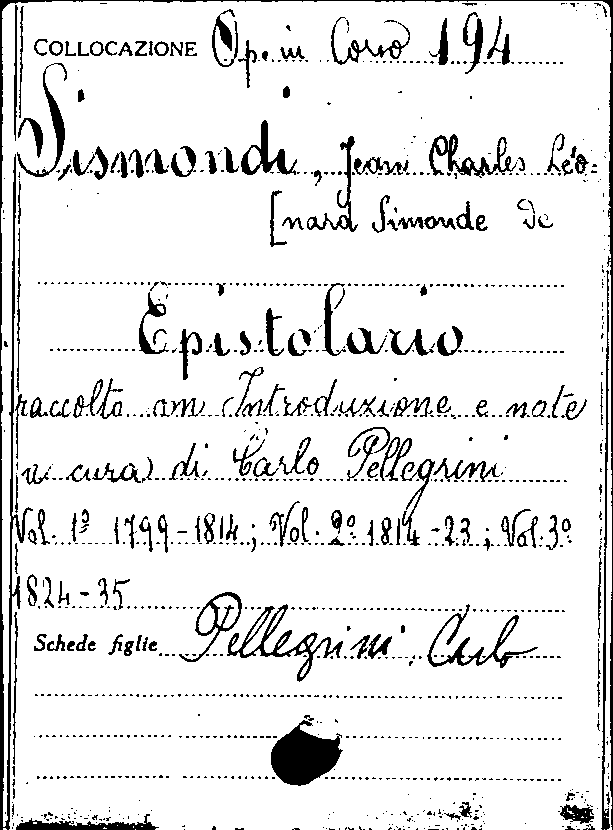 COLLOCAZIONE Op. in Corso 194
Sismondi, Jean Charles Léo=
[nard Simonde de
Epistolario
raccolto con Introduzione e note
a cura di Carlo Pellegrini
Vol. 1º 1799-1814; Vol. 2º 1814-23; Vol. 3º
1824-35
Schede figlie Pellegrini, Carlo